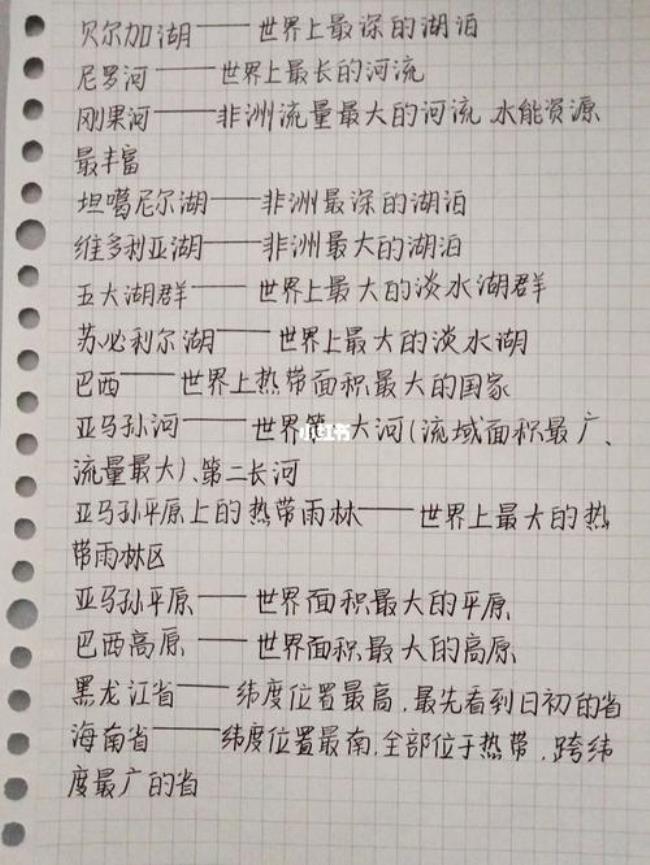 贝尔加湖——世界上最深的湖泊
尼罗河——世界上最长的河流
刚果河——非洲流量最大的河流 水能资源
最丰富
坦噶尼尔湖——非洲最深的湖泊
维多利亚湖——非洲最大的湖泊
五大湖群——世界上最大的淡水湖群
苏必利尔湖——世界上最大的淡水湖
巴西——世界上热带面积最大的国家
亚马孙河——世界第 大河(流域面积最广、
流量最大)、第二长河
亚马孙平原上的热带雨林——世界上最大的热
带雨林区
亚马孙平原——世界面积最大的平原
巴西高原——世界面积最大的高原
黑龙江省——纬度位置最高,最先看到日初的省
海南省——纬度位置最南,全部位于热带,跨纬
度最广的省
小红书